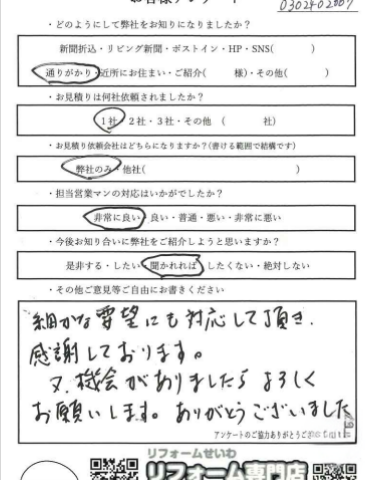 0302402007
・どのようにして弊社をお知りになりましたか？
新聞折込・リビング新聞・ポストイン・HP・SNS(　　　)
通りがかり・近所にお住まい・ご紹介(　　様)・その他(　　)
・お見積りは何社依頼されましたか？
1社・2社・3社・その他 (　　社)
・お見積り依頼会社はどちらになりますか？(書ける範囲で結構です)
弊社のみ・他社(　　　　)
・担当営業マンの対応はいかがでしたか？
非常に良い・良い・普通・悪い・非常に悪い
・今後お知り合いに弊社をご紹介しようと思いますか？
是非する・したい・聞かれれば・したくない・絶対しない
・その他ご意見等ご自由にお書きください
細かな要望にも対応して頂き、
感謝しております。
又、機会がありましたら よろしく
お願いします。ありがとうございました
アンケートのご協力ありがとうござ
リフォームせいわ
リフォーム専門店